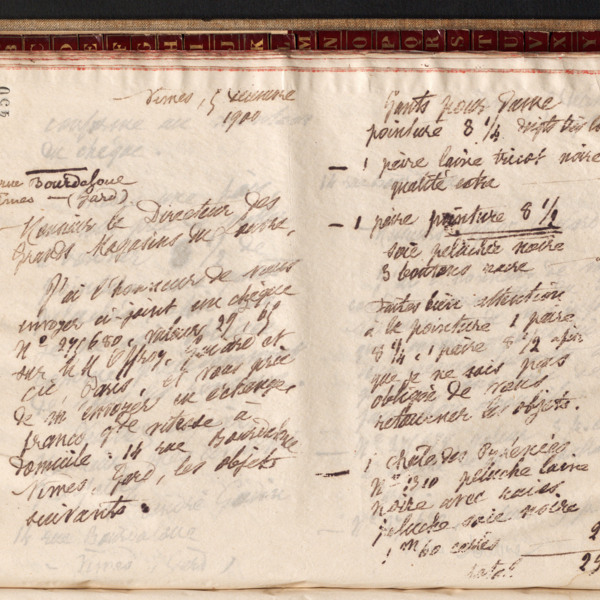 B C D E F G H I J K L M N O P Q R S T U V X Y
430
Nimes, 5
1900
rue Bourdaloue
Nimes — (Gard)
Monsieur le Directeur des
Grands Magasins du Louvre,
J'ai l'honneur de vous
envoyer ci-joint un chèque
N° 271680, valeur 29,65
sur M M Offroy, Guiard et
Cie, Paris, et vous prie
de m'envoyer en échange,
franco Gde vitesse à
domicile : 14 rue Bourdaloue
Nimes, Gard, les objets
suivants :
Gants pour Dame
pointure 8 1/4 doigts très
— 1 paire laine tricot noire
qualité extra
— 1 paire pointure 8 1/2
soie peluchée noire
3 boutons
Faites bien attention
à la pointure 1 paire
8 1/4, 1 paire 8 1/2 afin
que je ne sois pas
obligée de vous
retourner les objets.
— 1 châle des Pyrénées
N° 1310 peluche laine
noire avec raies
peluche soie noire
1 m 60
total